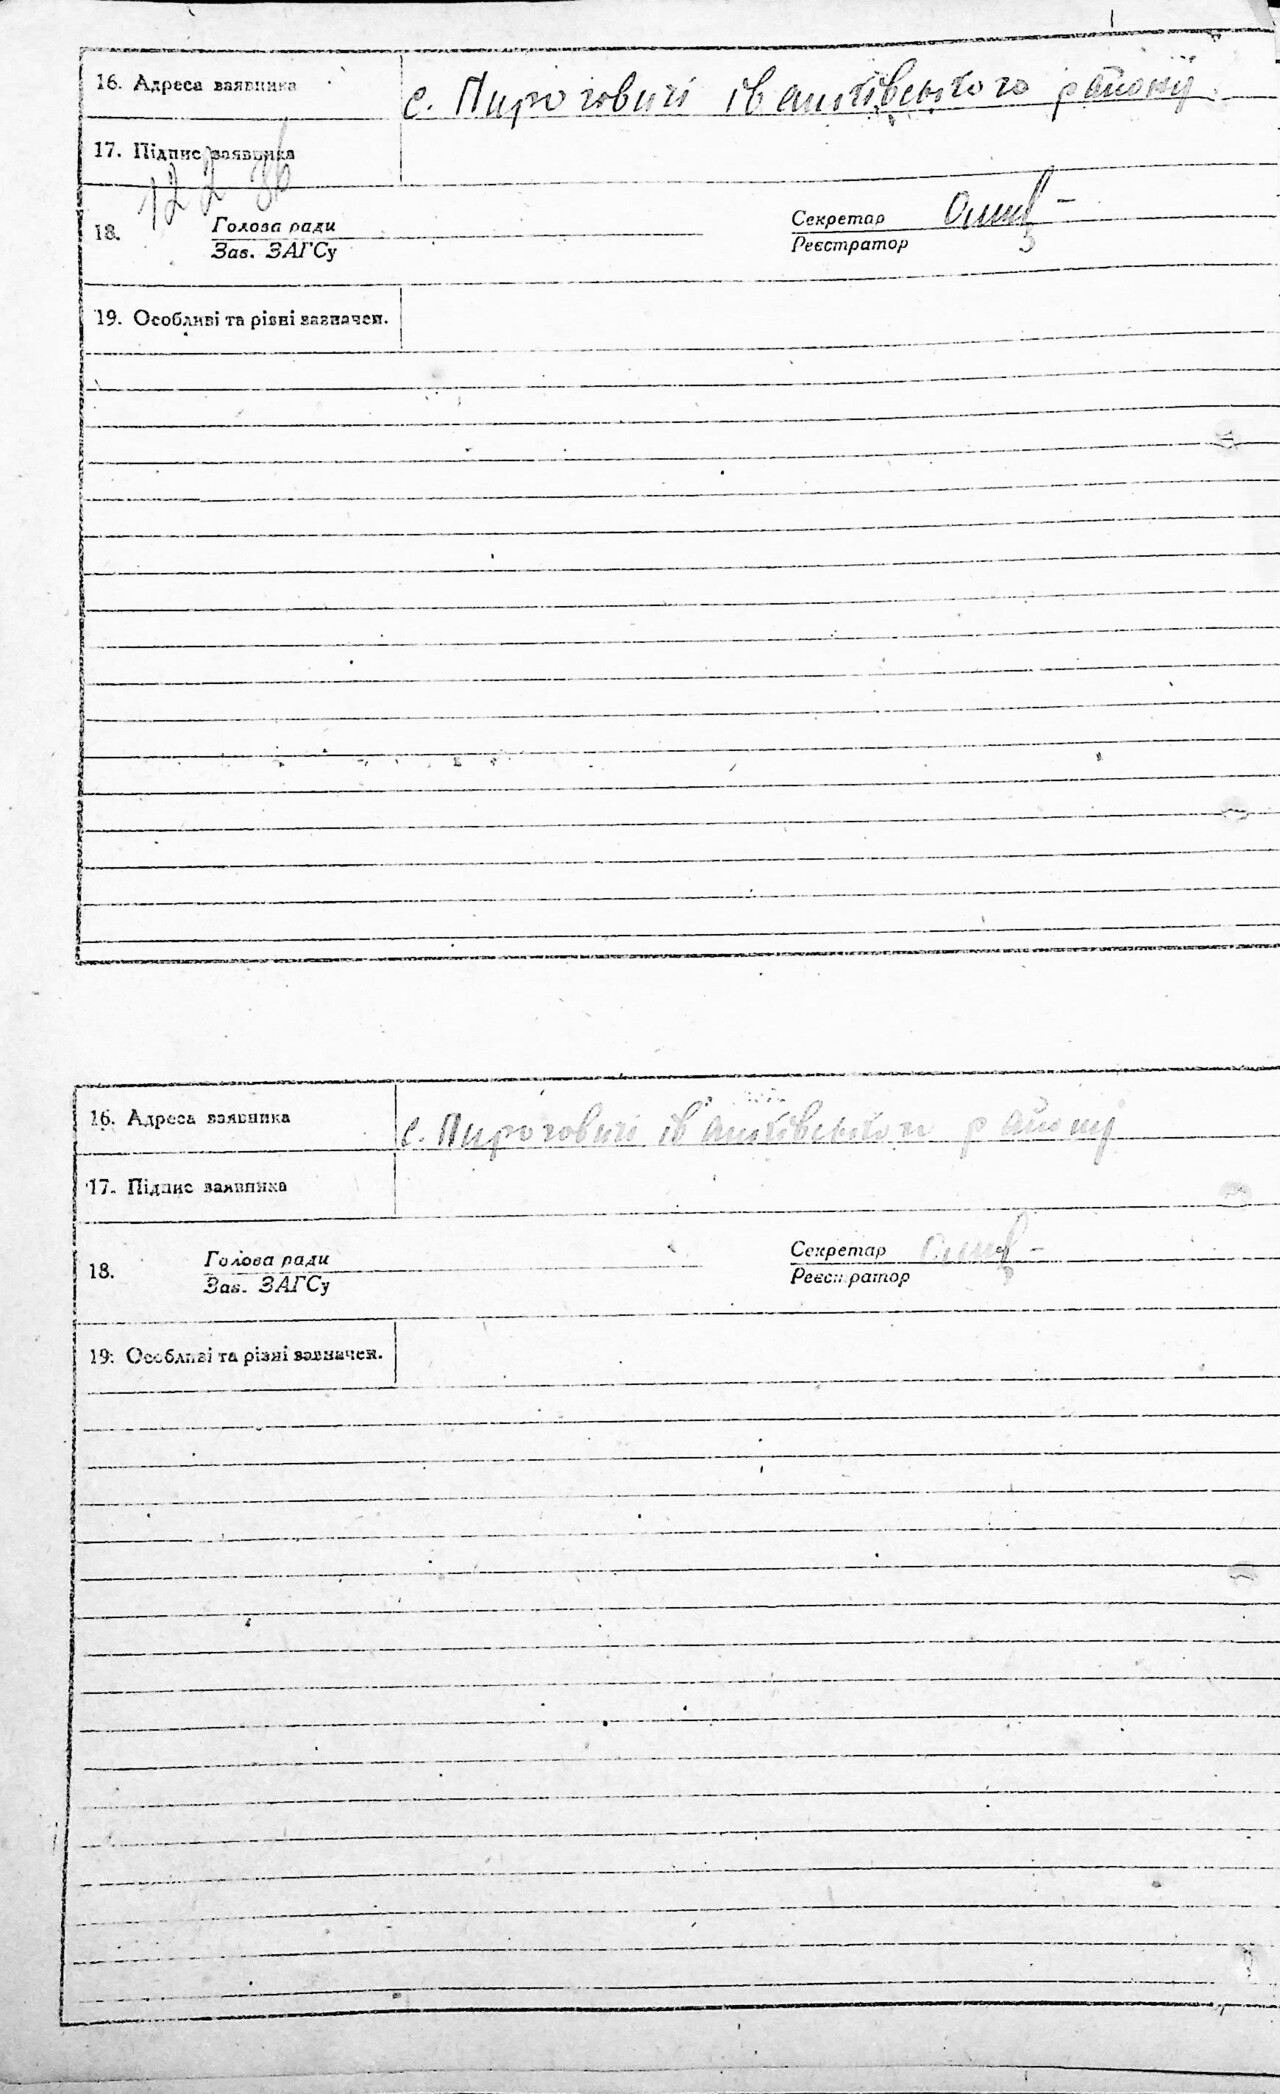 16. Адреса заявника с. Пироговичі іванківського району
17. Підпис заявника
122 36
18. Голова ради Секретар
Зав. ЗАГСу Реєстратор
19. Особливі та різні зазначен.
16. Адреса заявника с. Пироговичі іванківського району
17. Підпис заявника
18. Голова ради Секретар
Зав. ЗАГСу Реєстратор
19. Особливі та різні зазначен.